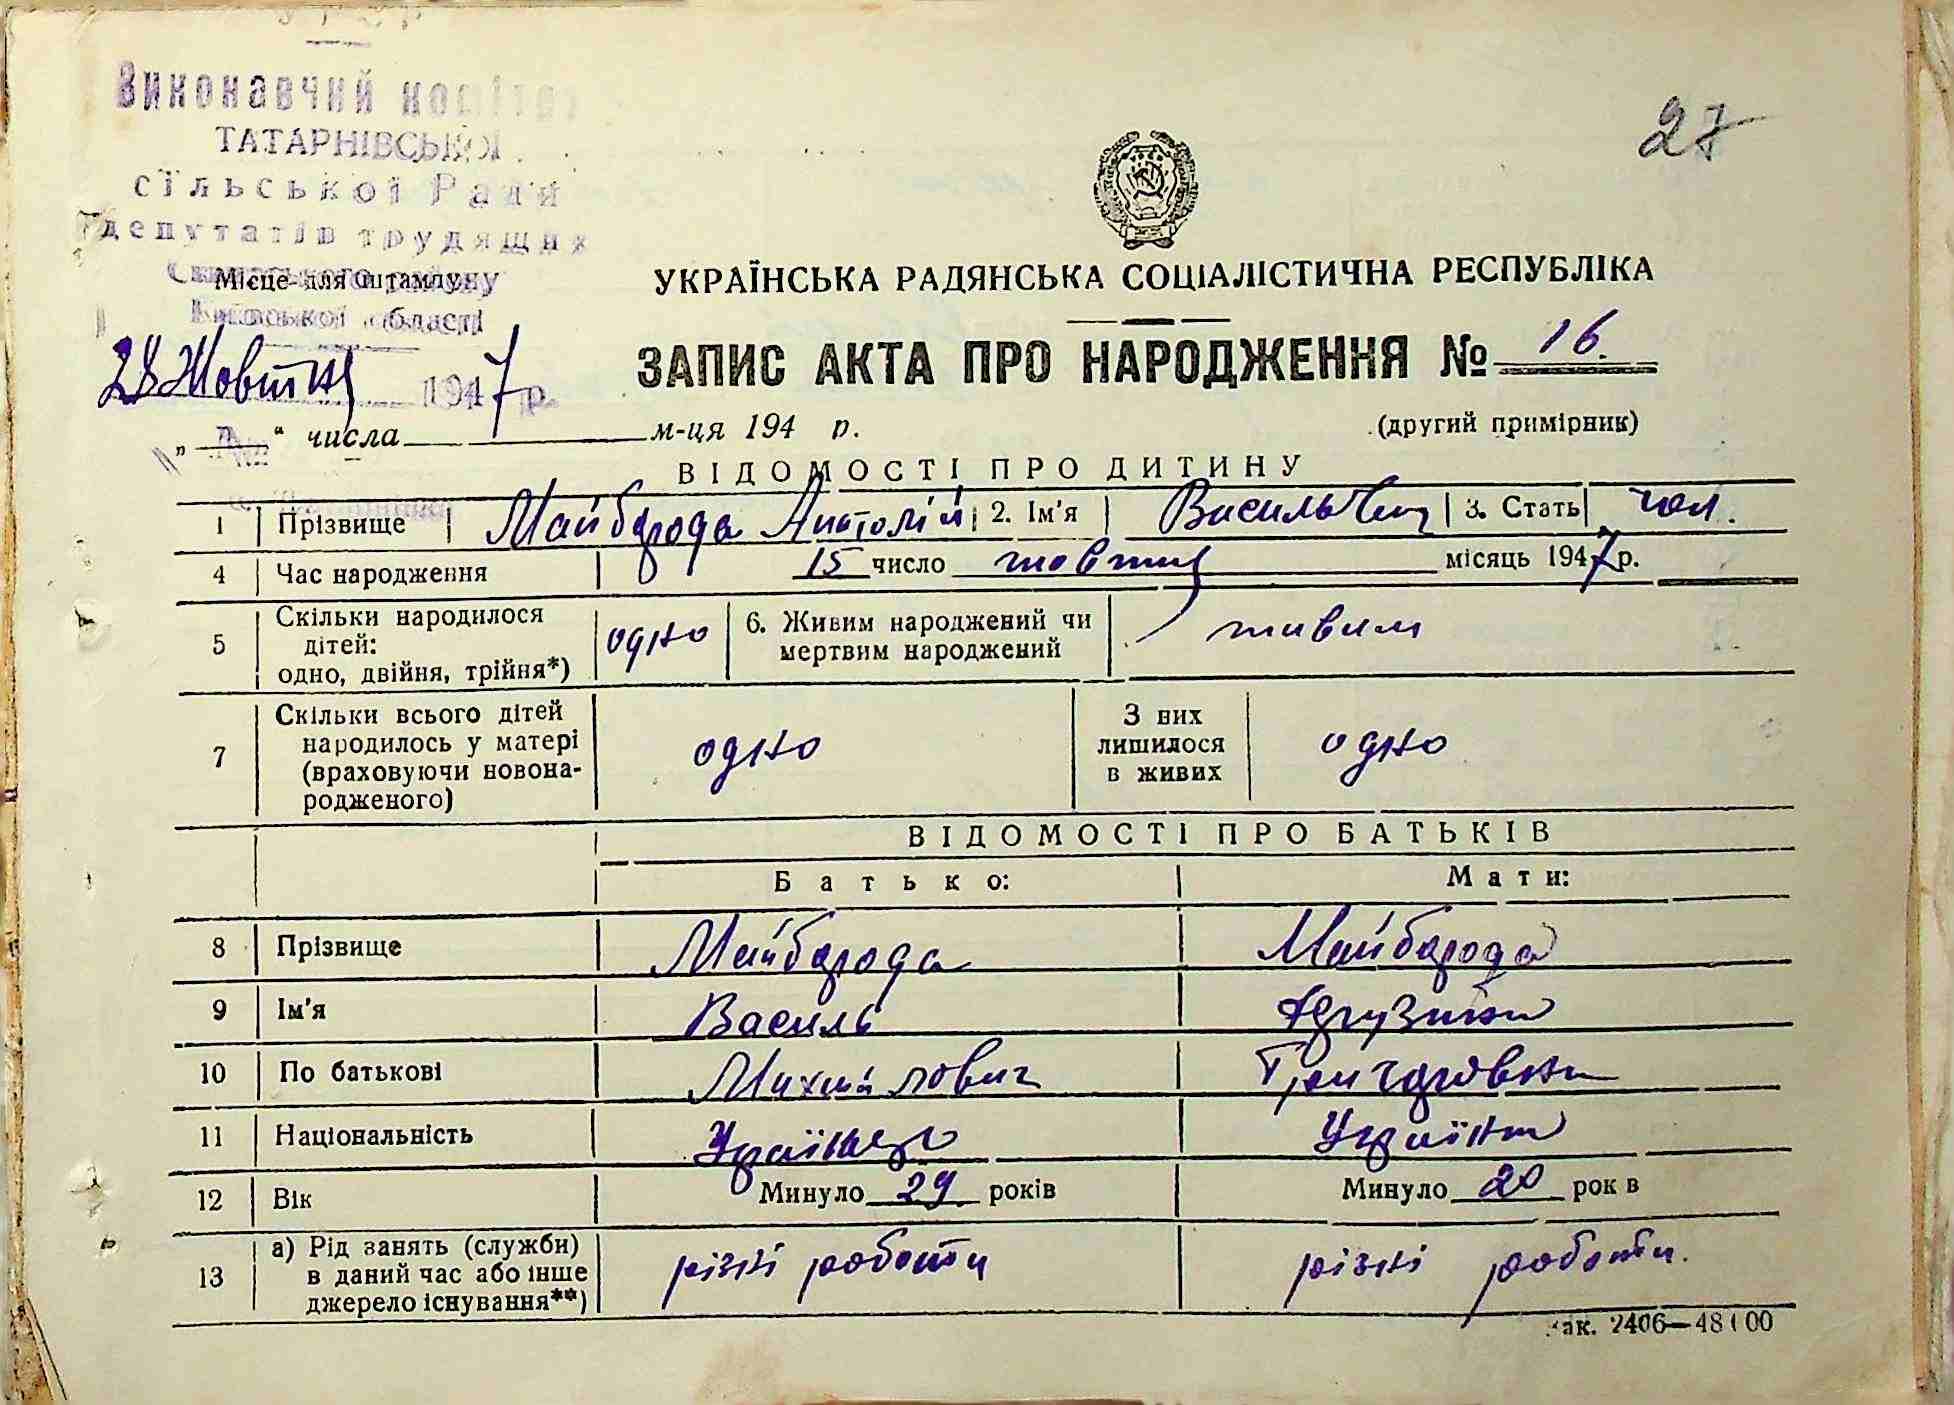 27
Виконавчий комітет
ТАТАРНІВСЬКОЇ
сільської Ради
депутатів трудящих
району
Київської області
Місце для штампу
28 Жовтня 1947 р.
„ “ числа м-ця 194 р.
УКРАЇНСЬКА РАДЯНСЬКА СОЦІАЛІСТИЧНА РЕСПУБЛІКА
ЗАПИС АКТА ПРО НАРОДЖЕННЯ № 16.
(другий примірник)
ВІДОМОСТІ ПРО ДИТИНУ
1 Прізвище Майборода Анатолій 2. Ім'я Васильович 3. Стать чол.
4 Час народження 15 число жовтня місяць 1947 р.
5 Скільки народилося дітей: одно, двійня, трійня*) одно 6. Живим народжений чи мертвим народжений живим
7 Скільки всього дітей народилось у матері (враховуючи новонародженого) одно З них лишилося в живих одно
ВІДОМОСТІ ПРО БАТЬКІВ
Батько: Мати:
8 Прізвище Майборода Майборода
9 Ім'я Василь
10 По батькові Михайлович
11 Національність Українець Українка
12 Вік Минуло 29 років Минуло 20 рок в
13 а) Рід занять (служби) в даний час або інше джерело існування**) різні роботи різні роботи.
ак. 2406—48